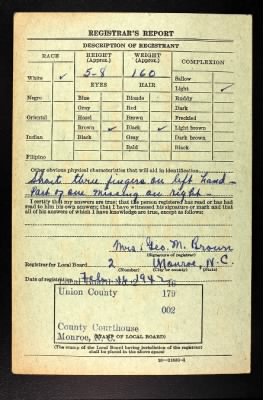 REGISTRAR'S REPORT
DESCRIPTION OF REGISTRANT
RACE
HEIGHT (Approx.)
WEIGHT (Approx.)
COMPLEXION
White ✓
5-8
160
Sallow
EYES
HAIR
Light ✓
Negro
Blue
Blonde
Ruddy
Gray
Red
Dark
Oriental
Hazel
Brown
Freckled
Brown ✓
Black ✓
Light brown
Indian
Black
Gray
Dark brown
Bald
Black
Filipino
Other obvious physical characteristics that will aid in identification
Short three fingers on left hand -
Part of one missing on right -
I certify that my answers are true; that the person registered has read or has had
read to him his own answers; that I have witnessed his signature or mark and that
all of his answers of which I have knowledge are true, except as follows:
Mrs. Geo. M. Brown
(Signature of registrar)
Registrar for Local Board 2 Monroe, N.C.
(Number) (City or county) (State)
Date of registration Feb. 16, 1942
Union County 179
002
County Courthouse
Monroe, N. C.
(STAMP OF LOCAL BOARD)
(The stamp of the Local Board having jurisdiction of the registrant
shall be placed in the above space)